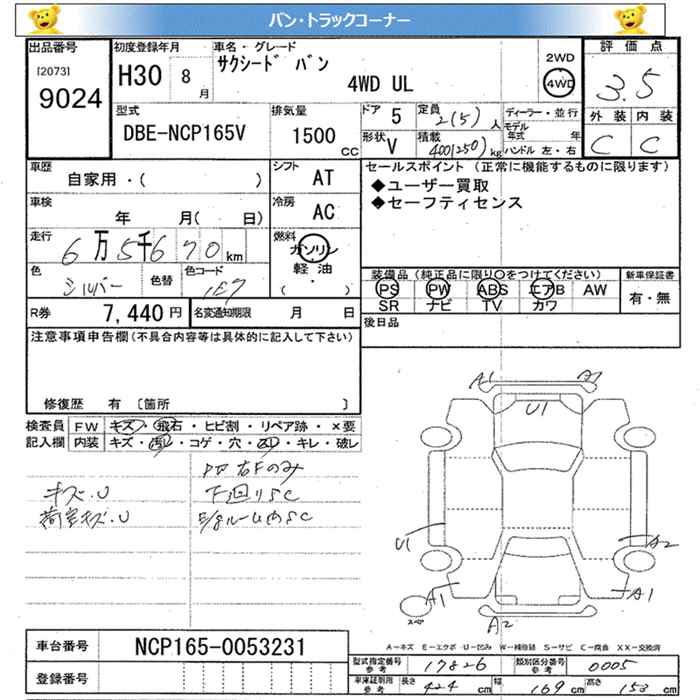 バン・トラックコーナー
出品番号
[2073]
9024
初度登録年月
H30 8 月
車名・グレード
サクシード バン
4WD UL
2WD
4WD
評価点
3.5
外装 内装
C C
型式
DBE-NCP165V
排気量
1500 CC
ドア 5
形状 V
定員 2(5) 人
積載 400(250) kg
ディーラー・並行
モデル年式 年
ハンドル 左・右
車歴
自家用・( )
シフト AT
車検
年 月( 日)
冷房 AC
走行
6万5千670km
燃料
ガソリン
軽油
( ・ )
色
シルバー
色替
色コード
1E7
R券 7,440円
名変通知期限 月 日
セールスポイント (正常に機能するものに限ります)
◆ユーザー買取
◆セーフティセンス
装備品 (純正品に限り○をつけてください)
PS PW ABS エアB AW
SR ナビ TV カワ
新車保証書
有・無
後日品
注意事項申告欄(不具合内容等は具体的に記入して下さい)
修復歴 有 〔箇所 〕
検査員記入欄
FW キズ・飛石・ヒビ割・リペア跡・×要
内装 キズ・汚れ・コゲ・穴・凹・キレ・破レ
PW右Fのみ
キズ・U
下回りSC
荷室キズ・U
E/gルーム内SC
A1 A1
U1
U1 A2
A1 A1
スペア
A2
A－キズ E－エクボ U－凹み W－補修跡 S－サビ C－腐食 XX－交換済
車台番号 NCP165-0053231
登録番号
型式指定番号参考 17826
類別区分番号参考 0005
車庫証明用参考
長さ 424 cm
幅 169 cm
高さ 153 cm